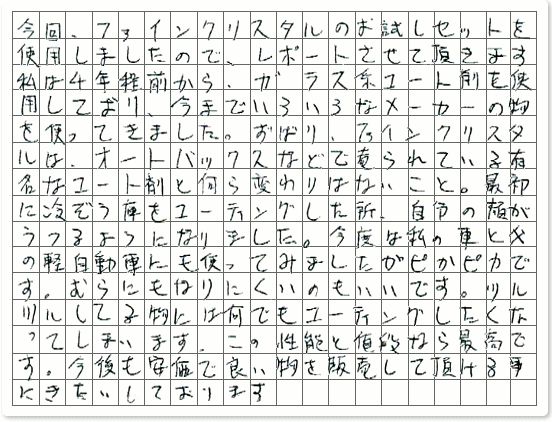 今回、ファインクリスタルのお試しセットを
使用しましたので、レポートさせて頂きます
私は4年程前から、ガラス系コート剤を使
用しており、今までいろいろなメーカーの物
を使ってきました。やはり、ファインクリスタ
ルは、オートバックスなどで売られている有
名なコート剤と何ら変わりはないこと。最初
に冷ぞう庫をコーティングした所、自分の顔が
うつるようになりました。今度は私の車と父
の軽自動車にも使ってみましたがピカピカで
す。むらにもなりにくいのもいいです。ツル
ツルしてる物には何でもコーティングしたくな
ってしまいます。この性能と値段なら最高で
す。今後も安価で良い物を販売して頂ける事
にきたいしております